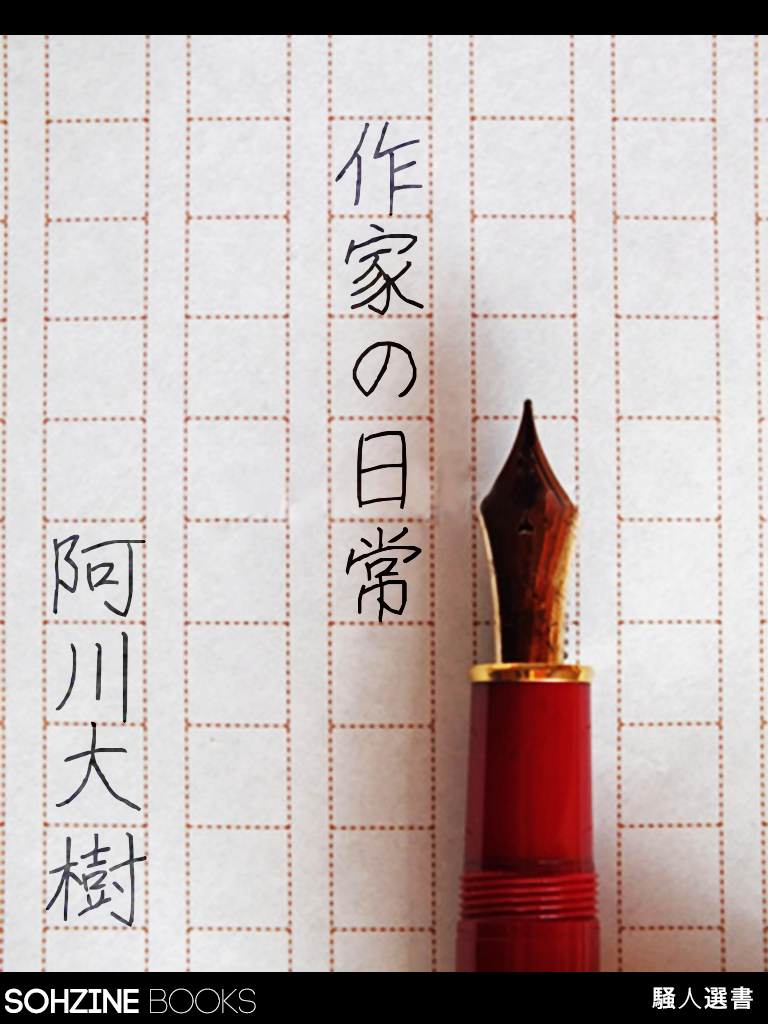 作家の日常
阿川大樹
SOHZINE BOOKS
騒人選書